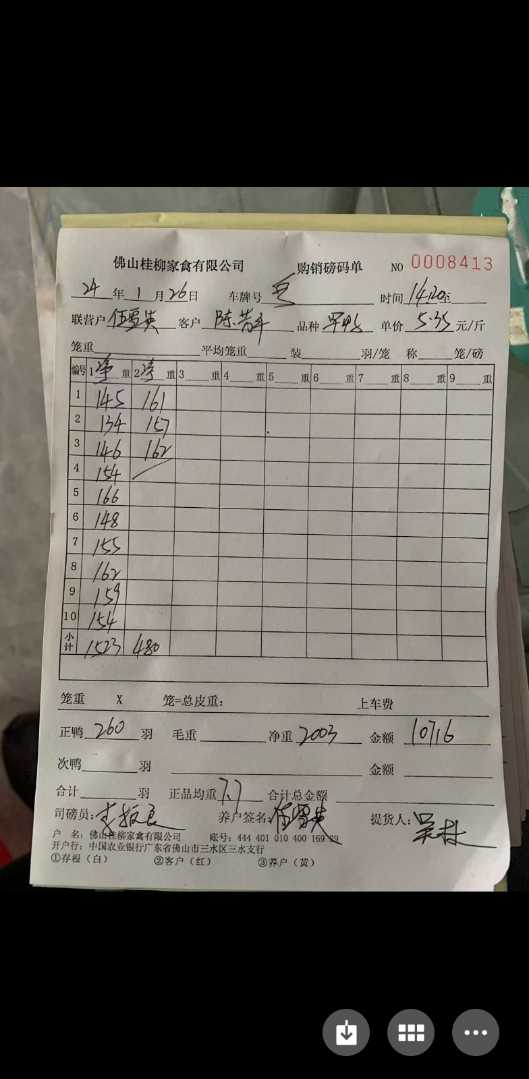 佛山桂柳家禽有限公司 购销磅码单 NO 0008413
24年1月26日 车牌号 时间14:20
联营户 客户 陈 品种 单价5.35元/斤
笼重 平均笼重 装 羽/笼 称 笼/磅
编号 1净重 2净重 3 重 4 重 5 重 6 重 7 重 8 重 9 重
1 145 161
2 134 157
3 146 162
4 154
5 166
6 148
7 155
8 162
9 159
10 154
小计 1523 480
笼重 X 笼=总皮重: 上车费
正鸭260羽 毛重 净重2003 金额10716
次鸭 羽 金额
合计 羽 正品均重7.7 合计总金额
司磅员: 李 养户签名: 提货人:
户 名: 佛山桂柳家禽有限公司 账号: 444 401 010 400 169
开户行: 中国农业银行广东省佛山市三水区三水支行
①存根(白) ②客户(红) ③养户(黄)